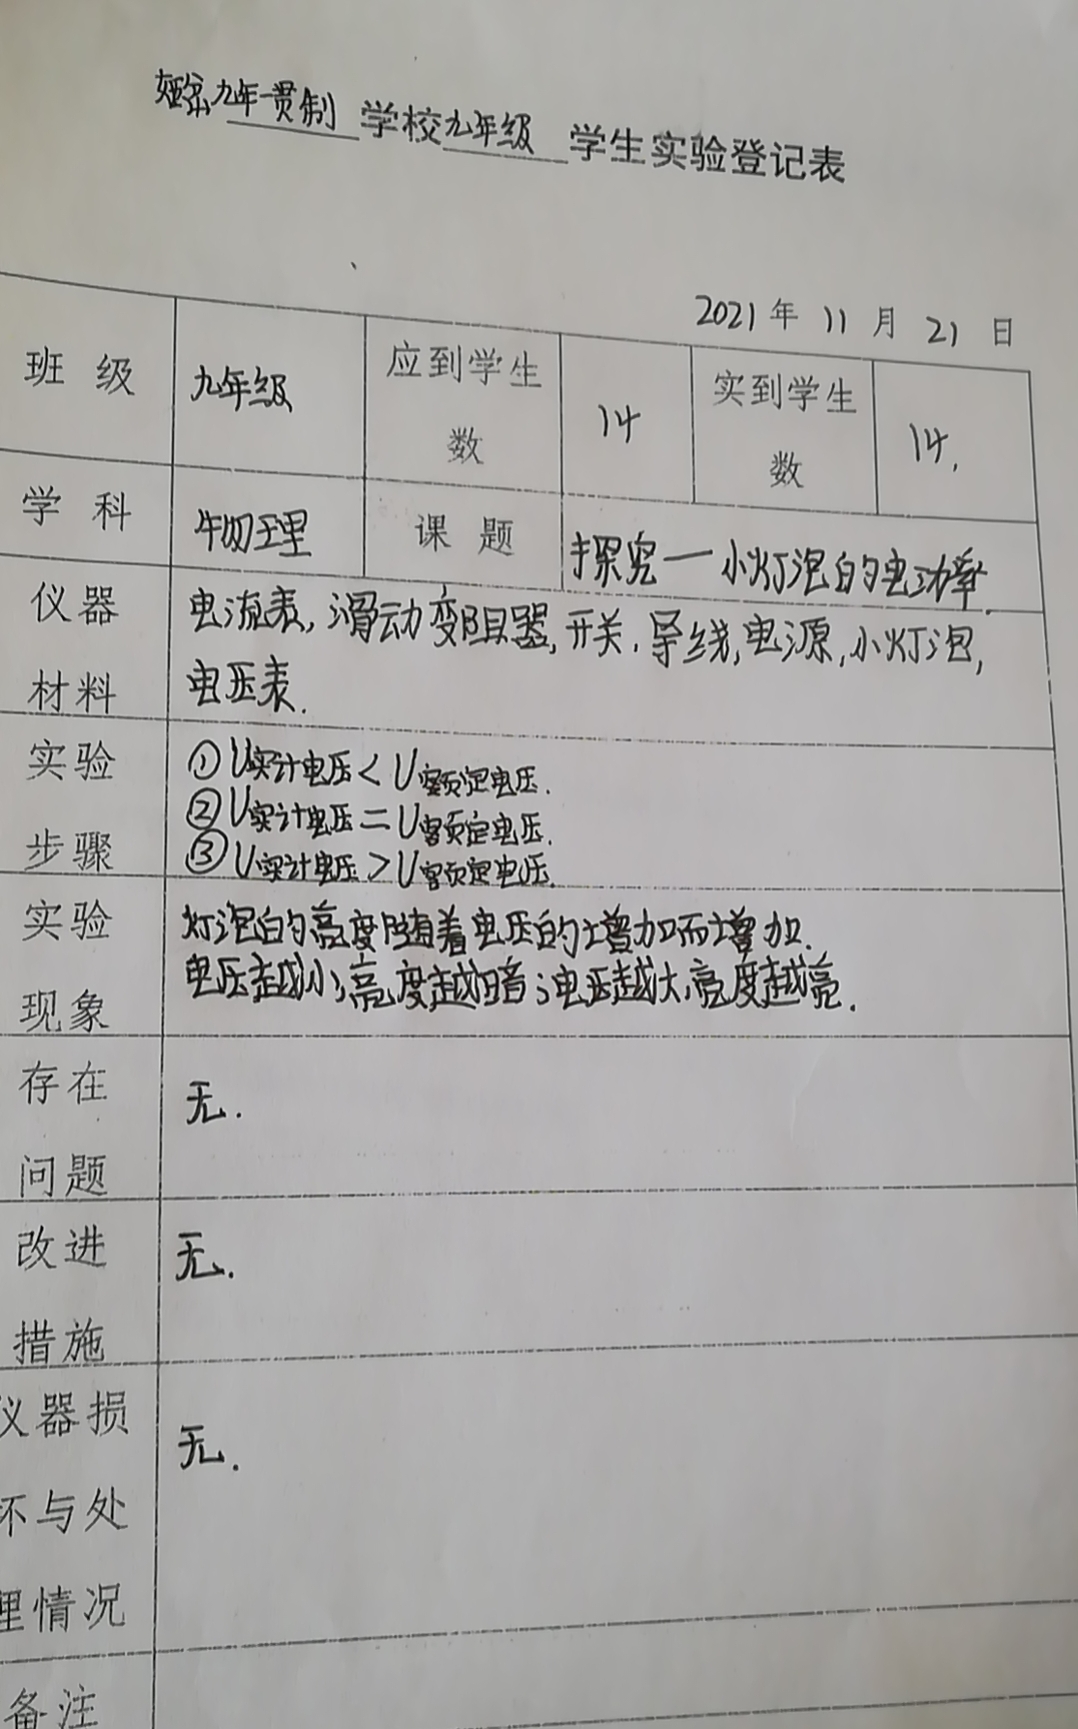 九年一贯制学校九年级学生实验登记表
2021年11月21日
班级 九年级 应到学生数 14 实到学生数 14.
学科 物理 课题 探究一小灯泡的电功率.
仪器材料 电流表,滑动变阻器,开关.导线,电源,小灯泡,
电压表.
实验步骤 ①U实计电压<U额定电压.
②U实计电压=U额定电压.
③U实计电压>U额定电压.
实验现象 灯泡的亮度随着电压的增加而增加.
电压越小,亮度越暗;电压越大,亮度越亮.
存在问题 无.
改进措施 无.
仪器损坏与处理情况 无.
备注